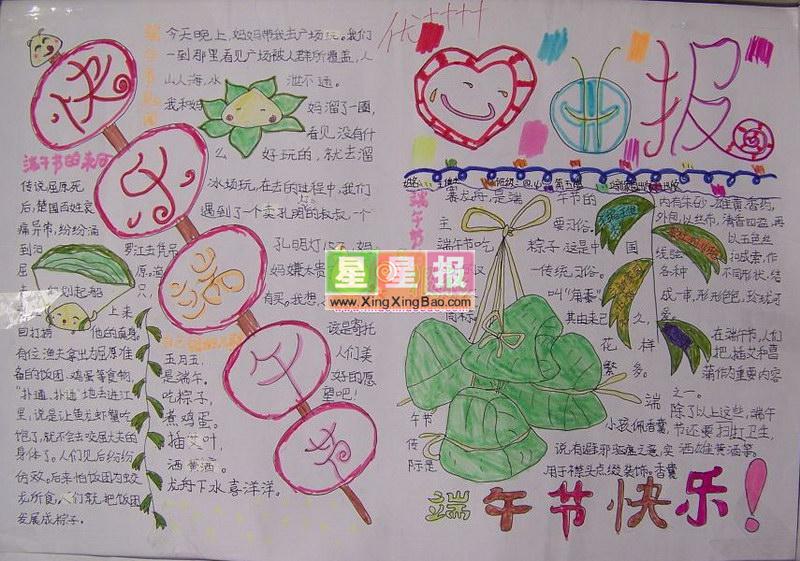 今天晚上,妈妈带我去广场玩。我们
一到那里,看见广场被人群所覆盖,人
山人海,水泄不通。
我和妈妈溜了一圈,
看见没有什
么好玩的,就去溜
冰场玩,在去的过程中,我们
遇到了一个卖孔明灯的叔叔,一个
孔明灯15元,妈
妈嫌太贵
有买。我想,
该是寄托
人们美
好的愿
望吧!
快乐端午节
端午节的来历
传说屈原死
后,楚国百姓哀
痛异常,纷纷涌
到汨罗江去凭吊
屈原。渔
夫们划起船只,
上来
回打捞他的真身。
有位渔夫拿出为屈原准
备的饭团、鸡蛋等食物,
“扑通、扑通”地丢进江
里,说是让鱼龙虾蟹吃
饱了,就不会去咬屈大夫的
身体了。人们见后纷纷
仿效。后来怕饭团为蛟
龙所食,人们就把饭团
发展成粽子。
五月五,
是端午。
吃粽子,
煮鸡蛋。
插艾叶,
洒黄酒。
龙舟下水喜洋洋。
优++++
报
赛龙舟,是端午节的
主要习俗。
端午节吃粽子,这是中国
一传统习俗。
叫“角黍”
其由来已久,
花样
繁多。
内有朱砂、雄黄、香药,
外包以丝布,清香四溢,再
以五色丝
线弦扣成索,作
各种不同形状,结
成一串,形形色色,玲珑可
爱。
在端午节,人们
把插艾和菖
蒲作为重要内容
之一。
除了以上这些,端午
节还要扫打卫生,
洒雄黄酒等。
端
午节小孩佩香囊,
传说有避邪驱瘟之意,实
际是用于襟头点缀装饰。香囊
端午节快乐!
星星报
www.XingXingBao.com